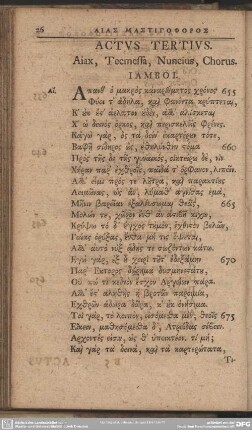 26 ΑΙΑΣ ΜΑΣΤΙΓΟΦΟΡΟΣ
ACTVS TERTIVS.
Aiax, Tecmessa, Nuncius, Chorus.
ΙΑΜΒΟΙ.
ΑΙ. Απανθ' ὁ μακρὸς κἀναρίθμητος χρόνος 655
Φύει τ' ἄδηλα, καὶ φανέντα κρύπτεται,
Κ' οὐκ ἔστ' ἄελπτον οὐδὲν, ἀλλ' ἁλίσκεται
Χ' ὠ δεινὸς ὅρκος, καὶ περισκελεῖς φρένες.
Κᾀγὼ γὰρ, ὃς τὰ δείν' ἐκαρτέρουν τότε,
Βαφῇ σίδηρος ὡς, ἐθηλύνθην στόμα 660
Πρὸς τῆς δε τῆς γυναικός, οἰκτείρω δέ νιν
Χήραν παρ' ἐχθροῖς, παῖδά τ' ὀρφανὸν λιπεῖν.
Ἀλλ' εἶμι πρός τε λουτρὰ, καὶ παρακτίους
Λειμῶνας, ὡς ἂν λύμαθ' ἁγνίσας ἐμὰ,
Μῆνιν βαρεῖαν ἐξαλεύσωμαι θεᾶς, 665
Μολών τε, χῶρον ἔνθ' ἂν ἀστιβῆ κίχω,
Κρύψω τό δ' ἔγχος τοὐμὸν, ἔχθιστον βελῶν,
Γαίας ὀρύξας, ἔνθα μή τις ὄψεται,
Ἀλλ' αὐτὸ νὺξ ᾅδης τε σωζόντων κάτω.
Ἐγὼ γὰρ, ἐξ οὗ χειρὶ τοῦτ' ἐδεξάμην 670
Παρ' Ἕκτορος δώρημα δυσμενεστάτου,
Οὔ πω τι κεδνὸν ἔσχον Ἀργείων πάρα.
Ἀλλ' ἔστ' ἀληθὴς ἡ βροτῶν παροιμία,
Ἐχθρῶν ἄδωρα δῶρα, κ' οὐκ ὀνήσιμα.
Τοὶ γὰρ, τὸ λοιπὸν, εἰσόμεσθα μὲν, θεοῖς 675
Εἴκειν, μαθησόμεσθα δ', Ἀτρείδας σέβειν.
Ἄρχοντές εἰσιν, ὥς θ' ὑπεικτέον. τί μή;
Καὶ γὰρ τὰ δεινὰ, καὶ τὰ καρτερώτατα,
Τι-